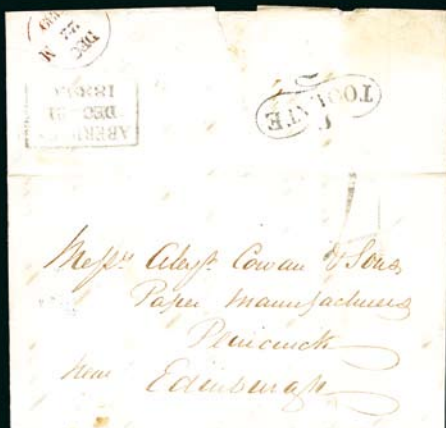 DEC
22
M
ABERDEEN
DEC 21
1839
TOO LATE
Messrs Alexr. Cowan & Sons
Paper Manufacturers
Penicuick
near Edinburgh